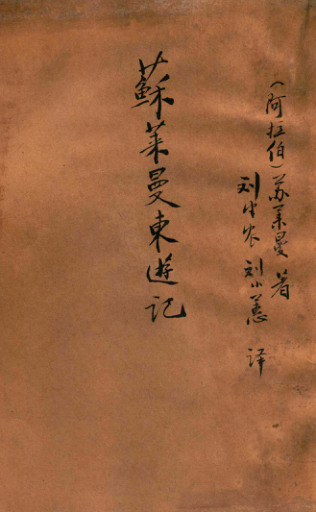 （阿拉伯）苏莱曼 著
刘半农 刘小蕙 译
蘇萊曼東遊记